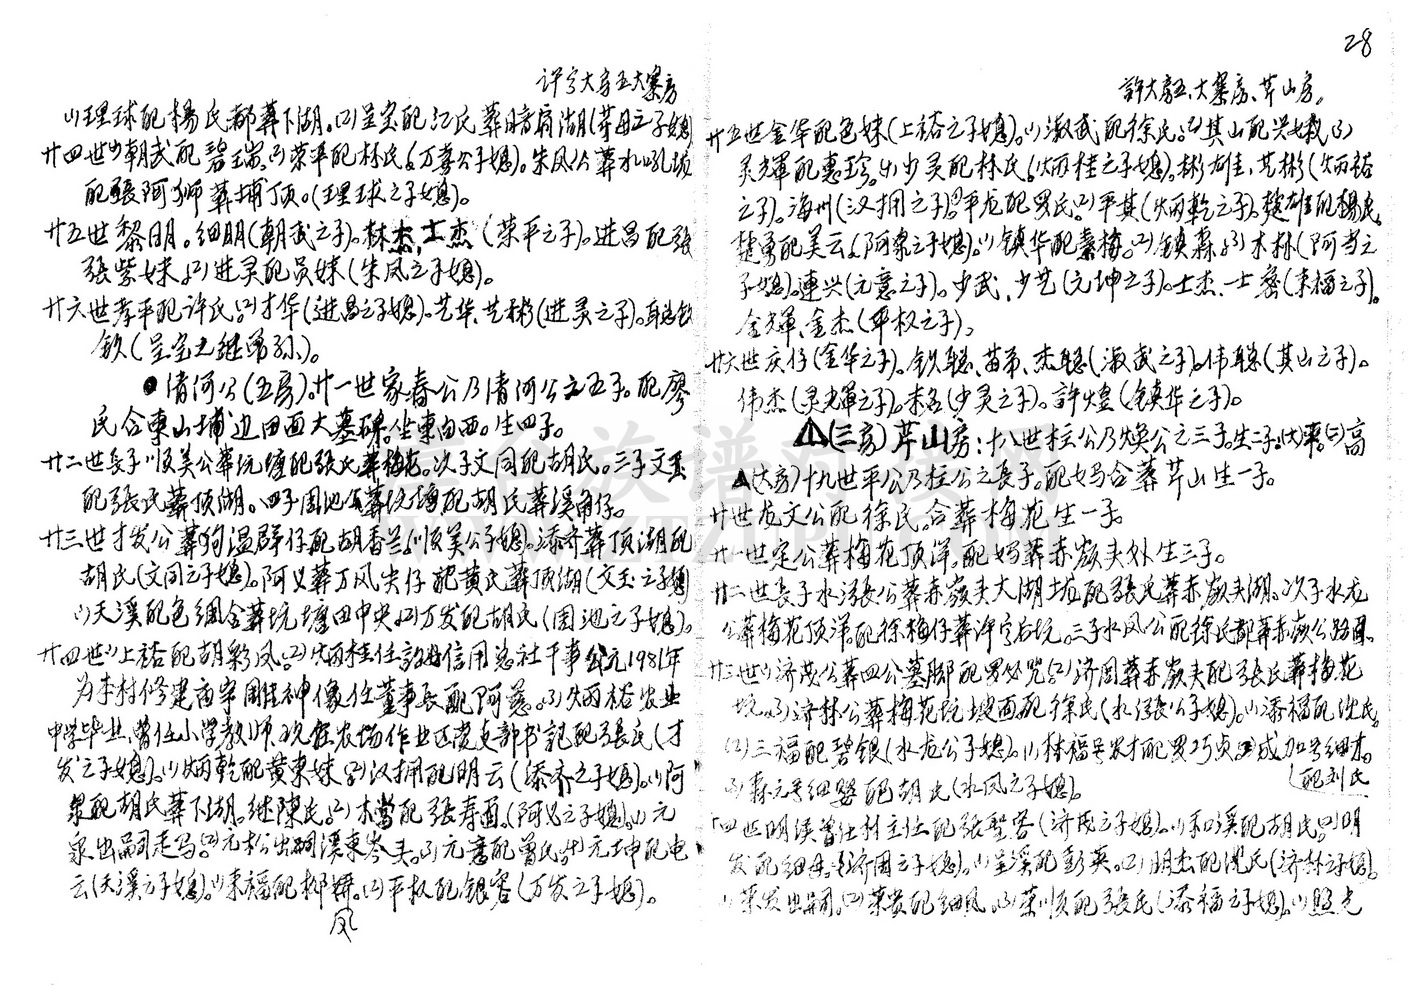 许字大房五大寨房
(1)理球配楊氏都葬下湖。(2)呈宝配江氏葬暗肩湖(芽母之子媳)
廿四世(1)朝武配碧瑞。(2)荣平配林氏(万寿公子媳)。朱凤公葬水吼坡
配張阿狮葬埔顶。(理球之子媳)。
廿五世黎明。细明(朝武之子)。林杰,士杰(荣平之子)。进昌配張
張紫妹。(2)进灵配员妹(朱凤之子媳)。
廿六世孝平配许氏。(2)才华(进昌之子媳)。艺华、艺彬(进灵之子)。
钦(呈宝之继男孙)。
●清河公(五房)。廿一世家春公乃清河公之五子。配廖
氏合東山埔边田面大墓碑。坐東向西。生四子。
廿二世長子順美公葬坑塘配張氏葬梅花。次子文同配胡氏。三子文玉
配張氏葬顶湖。四子国池公葬坑梅配胡氏葬溪角仔。
廿三世才发公葬狗温群仔配胡香兰(順美公子媳)。添齐葬顶湖配
胡氏(文同之子媳)。阿义葬万风尖仔配黄氏葬顶湖(文玉之子媳)
(1)天溪配色绸合葬坑塘田中央。(2)万发配胡氏(国池之子媳)。
廿四世(1)上裕配胡彩凤。(2)炳桂任信用总社干事公元1981年
为本村修建庙宇雕神像任董事長配阿慈。(3)炳裕农业
中学毕业、曾任小学教师、现在农场作业区党支部书記配張氏(才
发之子媳)。(1)炳乾配黄東妹(2)汉拥配明云(添齐之子媳)。(1)阿
泉配胡氏葬下湖。继陳氏。(2)木當配張寿酉。(阿义之子媳)。(1)元
泉出嗣走马。(2)元松出嗣溪東岑头。(3)元意配曾氏。(4)元坤配电
云(天溪之子媳)。(1)来福配柳娇。(2)平权配银容(万发之子媳)。
凤
28
許大房五、大寨房、芹山房。
廿五世金华配色妹(上裕之子媳)。(1)淑武配徐氏。(2)其山配兴娥(3)
灵輝配惠珍。(4)少灵配林氏(炳桂之子媳)。彬雄、艺彬(炳裕
之子)。海州(汉拥之子)。(1)平龙配男氏。(2)平其(炳乾之子)。楚雄配楊氏
楚勇配美云(阿泉之子媳)。(1)镇华配素梅。(2)镇霖。(3)木林(阿當之
子媳)。連兴(元意之子)。少武、少艺(元坤之子)。士杰、士齊(来福之子)。
金輝、金杰(平权之子)。
廿六世庆仔(金华之子)。钦聪、苗帝、杰聪(淑武之子)。伟聪(其山之子)。
伟杰(灵輝之子)。来名(少灵之子)。許煌(镇华之子)。
(三房)芹山房:十八世柱公乃焕公之三子。生二子。(大)平。(二)高
(大房)十九世平公乃柱公之長子。配妈合葬芹山生一子。
廿世龙文公配徐氏。合葬梅花生一子。
廿一世定公葬梅花顶洋。配妈葬赤嶺头外生三子。
廿二世長子水漲公葬赤嶺头大湖坵配張氏葬赤嶺头湖。次子水龙
公葬梅花顶洋配徐梅仔葬许字后坑。三子水凤公配徐氏都葬赤嶺公路面。
廿三世(1)济茂公葬四公墓脚配男必党(2)济周葬赤嶺头配張氏葬梅花
坑。(3)济林公葬梅花坑坡面配徐氏(水漲公子媳)。(1)添福配沈氏。
(2)三福配碧银(水龙公子媳)。(1)林福号农才配男巧贞(2)成加号细木
配刘氏
(3)森元号细婴配胡氏(水凤之子媳)。
廿四世明漢曾任村主任配張聖容(济茂之子媳)。(1)来溪配胡氏。(2)明
发配细母。(济周之子媳)。(1)呈溪配彭英。(2)明杰配沈氏(济林之子媳)。
(1)荣发出嗣。(2)荣贵配细凤。(3)荣順配張氏(添福之子媳)。(1)照光